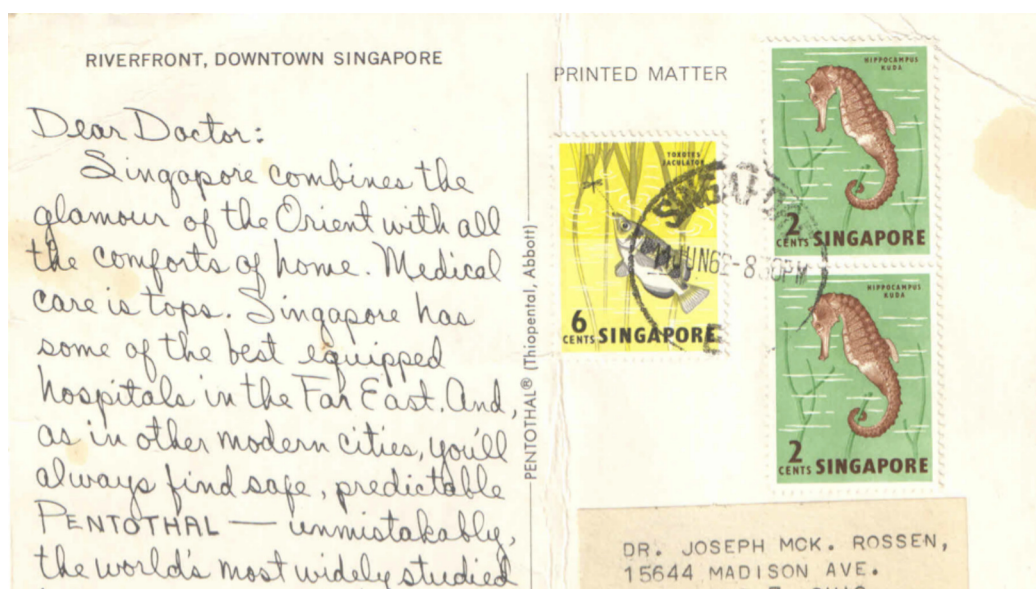 RIVERFRONT, DOWNTOWN SINGAPORE
Dear Doctor:
Singapore combines the
glamour of the Orient with all
the comforts of home. Medical
care is tops. Singapore has
some of the best equipped
hospitals in the Far East. And,
as in other modern cities, you'll
always find safe, predictable
PENTOTHAL — unmistakably,
the world's most widely studied
PENTOTHAL® (Thiopental, Abbott)
PRINTED MATTER
TOXOTES
JACULATOR
6
CENTS SINGAPORE
HIPPOCAMPUS
KUDA
2
CENTS SINGAPORE
HIPPOCAMPUS
KUDA
2
CENTS SINGAPORE
SINGAP
JUN62-8
DR. JOSEPH MCK. ROSSEN,
15644 MADISON AVE.